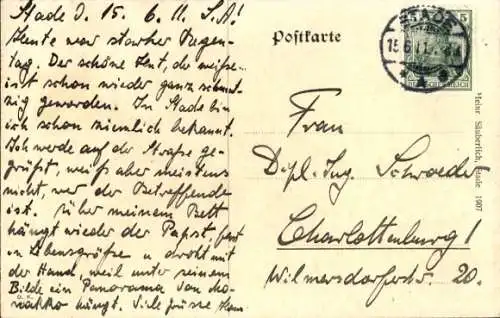 Stade d. 15. 6. 11. S.A!
Heute war starker Regen-
tag. Der schöne Hut, der weiße
ist schon wieder ganz schmut-
zig geworden. In Stade bin
ich schon ziemlich bekannt.
Ich werde auf der Straße ge-
grüßt, weiß aber meistens
nicht wer der Betreffende
ist. Über meinem Bett
hängt wieder der Papst, fast
in Lebensgröße u. droht mit
der Hand, weil unter seinem
Bilde ein Panorama von
hängt. Viele Grüsse
Postkarte
STADE
15.6.11.
5
Frau
Dipl. Ing. Schroeder
Charlottenburg 1
Wilmersdorferstr. 20.
Heinr. Säuberlich, Stade 1907